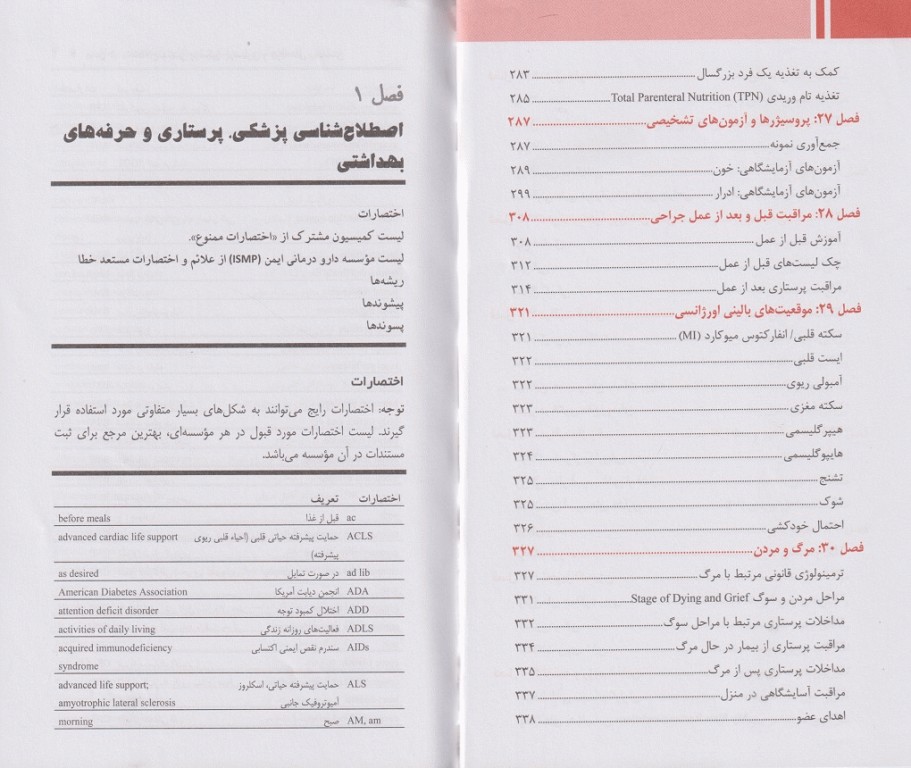 کمک به تغذیه یک فرد بزرگسال ........ ۲۸۳
تغذیه تام وریدی Total Parenteral Nutrition (TPN) ........ ۲۸۵
فصل ۲۷: پروسیژرها و آزمون‌های تشخیصی ........ ۲۸۷
جمع‌آوری نمونه ........ ۲۸۷
آزمون‌های آزمایشگاهی: خون ........ ۲۸۹
آزمون‌های آزمایشگاهی: ادرار ........ ۲۹۹
فصل ۲۸: مراقبت قبل و بعد از عمل جراحی ........ ۳۰۸
آموزش قبل از عمل ........ ۳۰۸
چک لیست‌های قبل از عمل ........ ۳۱۲
مراقبت پرستاری بعد از عمل ........ ۳۱۴
فصل ۲۹: موقعیت‌های بالینی اورژانسی ........ ۳۲۱
سکته قلبی/ انفارکتوس میوکارد (MI) ........ ۳۲۱
ایست قلبی ........ ۳۲۲
آمبولی ریوی ........ ۳۲۲
سکته مغزی ........ ۳۲۳
هیپرگلیسمی ........ ۳۲۳
هایپوگلیسمی ........ ۳۲۴
تشنج ........ ۳۲۵
شوک ........ ۳۲۵
احتمال خودکشی ........ ۳۲۶
فصل ۳۰: مرگ و مردن ........ ۳۲۷
ترمینولوژی قانونی مرتبط با مرگ ........ ۳۲۷
مراحل مردن و سوگ Stage of Dying and Grief ........ ۳۳۱
مداخلات پرستاری مرتبط با مراحل سوگ ........ ۳۳۲
مراقبت پرستاری از بیمار در حال مرگ ........ ۳۳۴
مداخلات پرستاری پس از مرگ ........ ۳۳۵
مراقبت آسایشگاهی در منزل ........ ۳۳۷
اهدای عضو ........ ۳۳۸
فصل ۱
اصطلاح‌شناسی پزشکی، پرستاری و حرفه‌های
بهداشتی
اختصارات
لیست کمیسیون مشترک از «اختصارات ممنوع».
لیست مؤسسه دارو درمانی ایمن (ISMP) از علائم و اختصارات مستعد خطا
ریشه‌ها
پیشوندها
پسوندها
اختصارات
توجه: اختصارات رایج می‌توانند به شکل‌های بسیار متفاوتی مورد استفاده قرار
گیرند. لیست اختصارات مورد قبول در هر مؤسسه‌ای، بهترین مرجع برای ثبت
مستندات در آن مؤسسه می‌باشد.
اختصارات تعریف
ac قبل از غذا before meals
ACLS حمایت پیشرفته حیاتی قلبی (احیاء قلبی ریوی advanced cardiac life support
پیشرفته)
ad lib در صورت تمایل as desired
ADA انجمن دیابت آمریکا American Diabetes Association
ADD اختلال کمبود توجه attention deficit disorder
ADLS فعالیت‌های روزانه زندگی activities of daily living
AIDs سندرم نقص ایمنی اکتسابی acquired immunodeficiency
syndrome
ALS حمایت پیشرفته حیاتی، اسکلروز advanced life support;
آمیوتروفیک جانبی amyotrophic lateral sclerosis
AM, am صبح morning